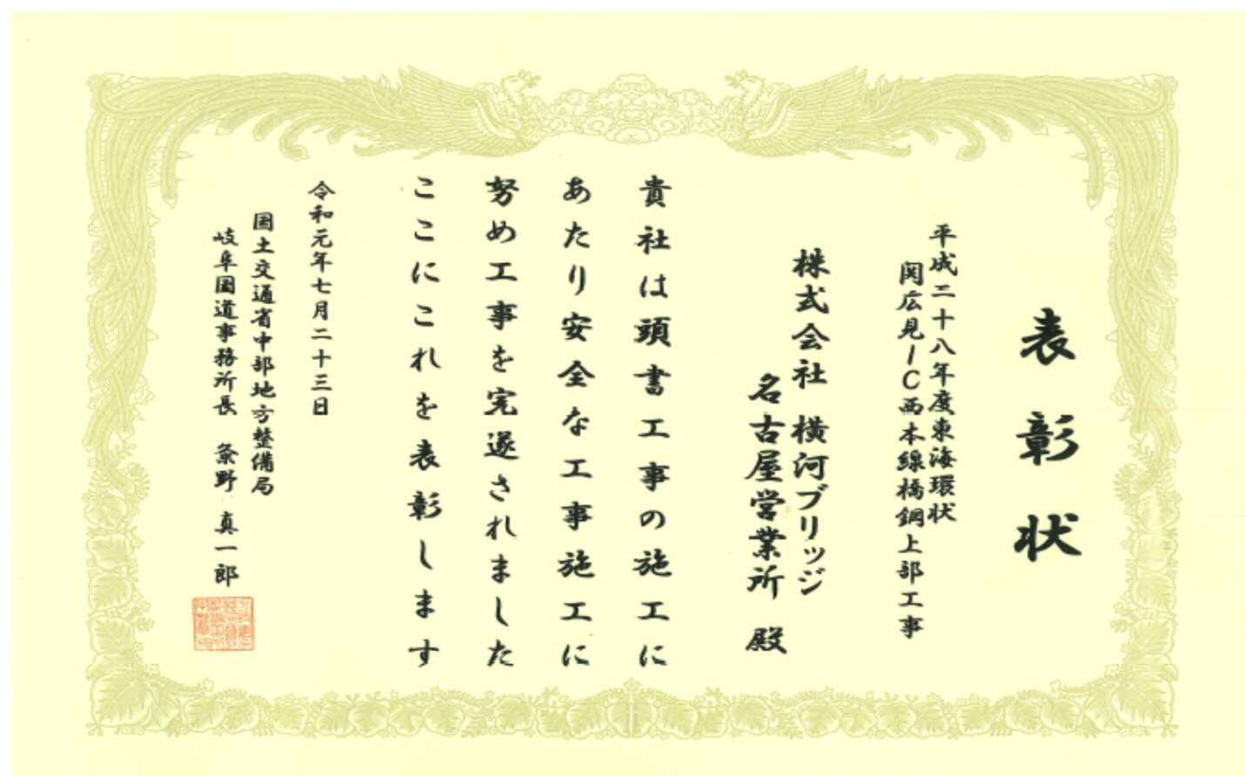 表彰状
平成二十八年度東海環状
関広見IC西本線橋鋼上部工事
株式会社 横河ブリッジ
名古屋営業所 殿
貴社は頭書工事の施工に
あたり安全な工事施工に
努め工事を完遂されました
ここにこれを表彰します
令和元年七月二十三日
国土交通省中部地方整備局
岐阜国道事務所長 粂野 真一郎